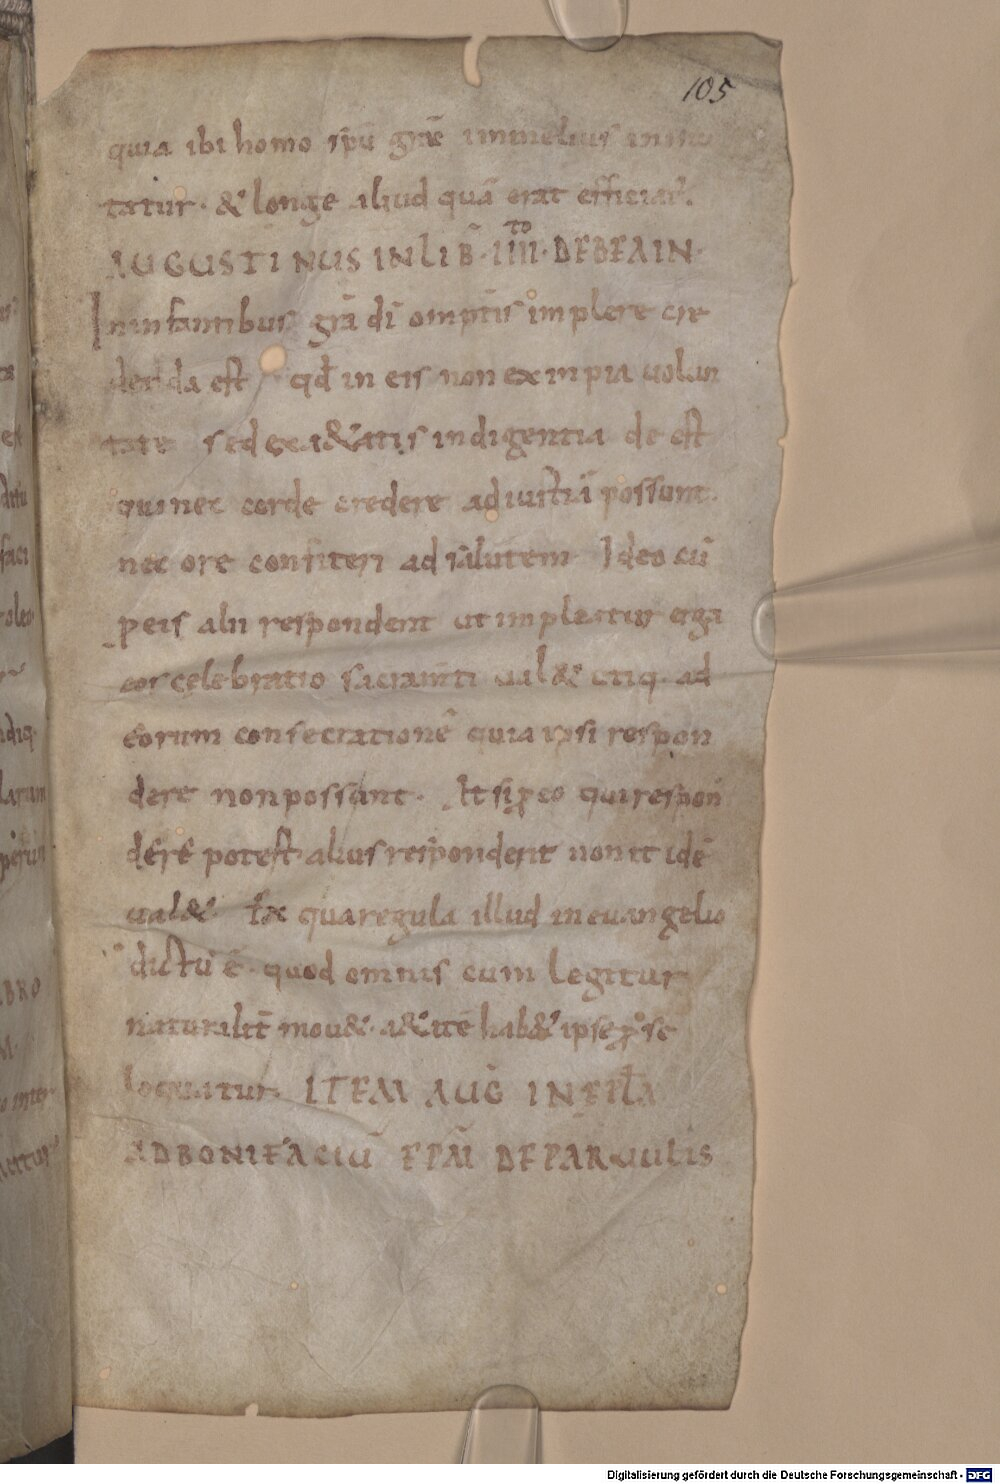 105
quia ibi homo spū grǣ inmelius inmu
tatur· & longe aliud quā erat efficiat͛.
AUGUSTINUS INLIB̄·IIII^to·DEBEAIN·
Ininfantibus gr̄a dī omp̄tis implere cre
denda est qd̄ in eis non ex inpia uolun
tate sed ex a&atis indigentia de est
qui nec corde credere adiustitiā possunt·
nec ore confiteri ad salutem Ideo cū
ꝑeis alii respondent ut impleatur erga
eos celebratio sacram̄ti ual& utiq· ad
eorum consecrationē quia ipsi respon
dere nonpossunt· At si ꝓ eo qui respon
dere potest alius respondent non it idē
ual&· Ex qua regula illud in euangelio
dictū ē· quod omnis cum legitur
naturalit̄ mou&· a&atē hab& ipse ꝓ se
loquatur· ITEM AUḠ INEPL̄A
ADBONIFACIŪ EPM̄ DEPARUULIS
Digitalisierung gefördert durch die Deutsche Forschungsgemeinschaft - DFG